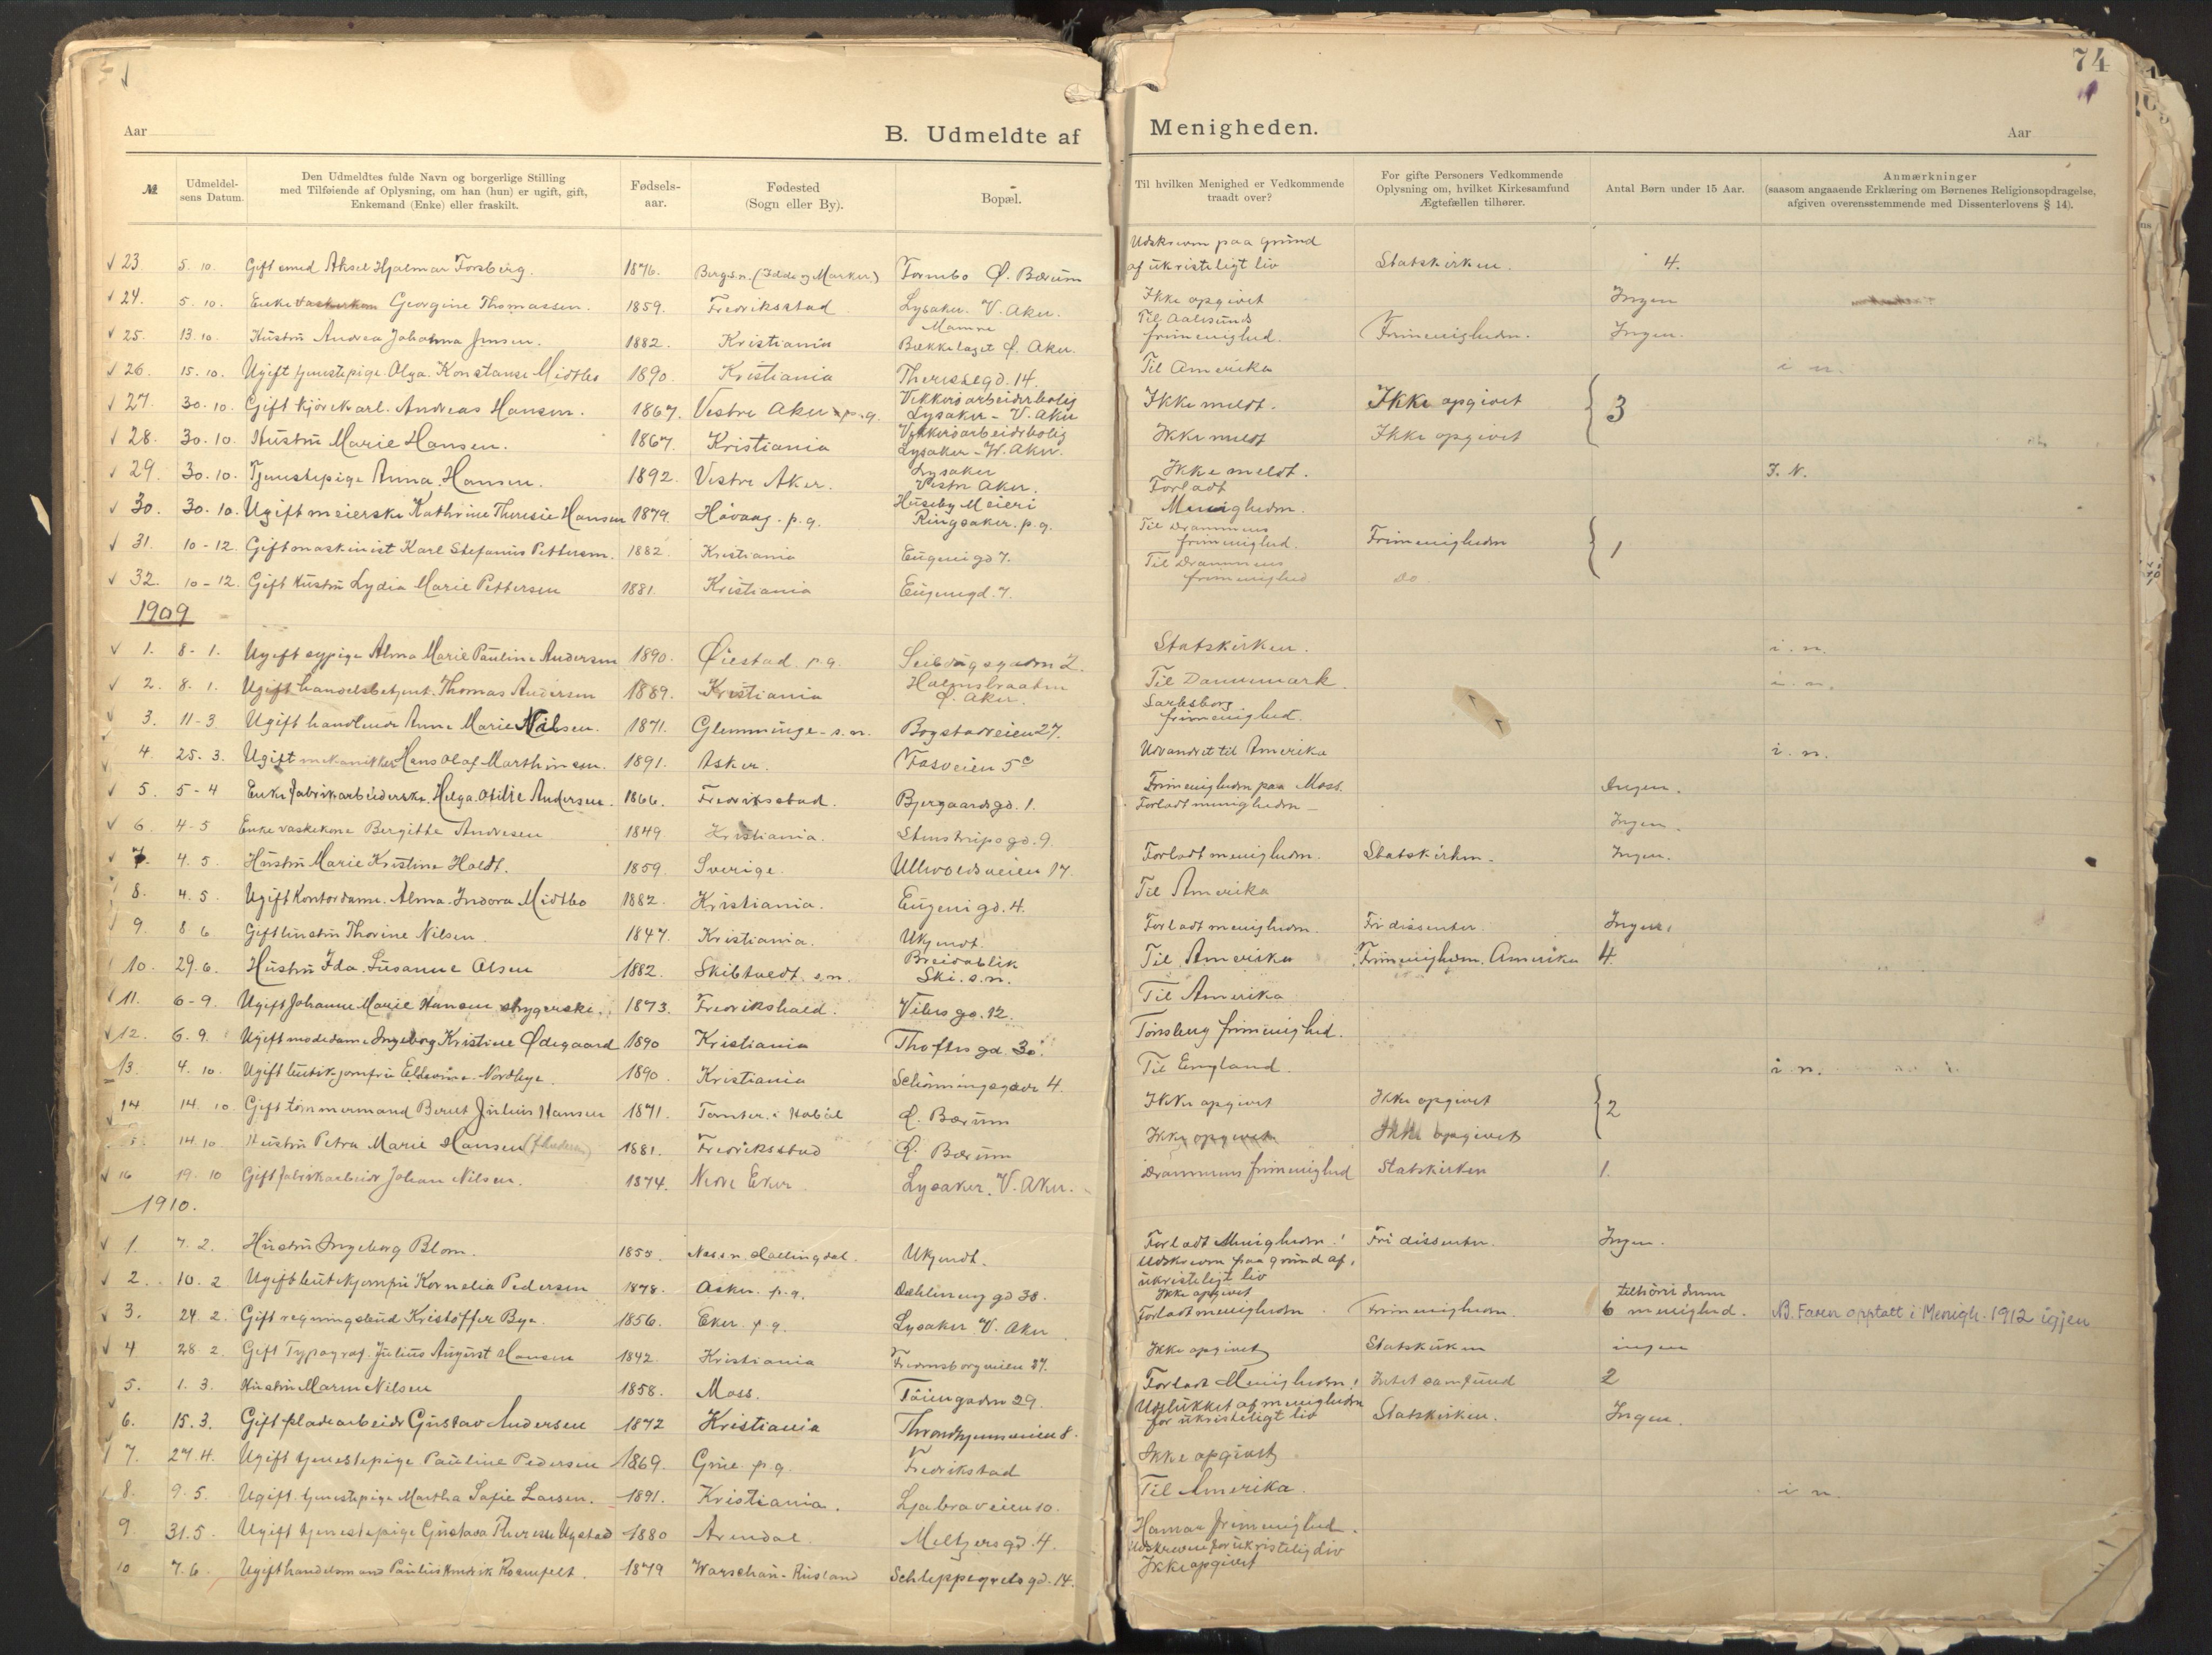 74
Aar
B. Udmeldte af Menigheden.
Aar
№
Udmeldelsens Datum.
Den Udmeldtes fulde Navn og borgerlige Stilling
med Tilføiende af Oplysning, om han (hun) er ugift, gift,
Enkemand (Enke) eller fraskilt.
Fødselsaar.
Fødested
(Sogn eller By).
Bopæl.
Til hvilken Menighed er Vedkommende
traadt over?
For gifte Personers Vedkommende
Oplysning om, hvilket Kirkesamfund
Ægtefællen tilhører.
Antal Børn under 15 Aar.
Anmærkninger
(saasom angaaende Erklæring om Børnenes Religionsopdragelse,
afgiven overensstemmende med Dissenterlovens § 14).
23 5. 10. Gift smed Aksel Hjalmar Forsberg. 1876. Bergs.n. (Idde og Marker) Fornebo Ø. Bærum Udskreven paa grund af ukristeligt liv Statskirken. 4.
24. 5. 10. Enke Georgine Thomassen. 1859. Fredriksstad Lysaker. V. Aker. Ikke opgivet Ingen
25. 13. 10 Hustru Andrea Johanna Jensen. 1882. Kristiania Bækkelaget Ø. Aker. Til Aalesunds frimenighed. Frimenigheden. Ingen.
26. 15. 10. Ugift tjenestepige Olga Konstanse Midtbo 1890. Kristiania Theresegd. 14. Til Amerika i n.
27. 30. 10. Gift kjørekarl. Andreas Hansen. 1867. Vestre Aker p.g. Vækkerø arbeiderbolig Lysaker - V. Aker Ikke meldt. Ikke opgivet 3
28. 30. 10. Hustru Marie Hansen. 1867. Kristiania Vækkerø arbeiderbolig Lysaker - V. Aker. Ikke meldt Ikke opgivet
29. 30. 10. Tjenestepige Anna Hansen. 1892. Vestre Aker. Lysaker Vestre Aker. Ikke meldt. I. N.
30. 30. 10. Ugift meierske Kathrine Theresie Hansen 1879. Håvaag. p.g. Huseby Meieri Ringsaker. p.g. Forladt Menigheden.
31. 10-12. Gift maskinist Karl Stefanus Pettersen. 1882. Kristiania Eugenigd 7. Til Drammens frimenighed. Frimenigheden 1
32. 10-12. Gift Hustru Lydia Marie Pettersen 1881. Kristiania Eugenigd. 7. Til Drammens frimenighed Do.
1909
1. 8-1. Ugift sypige Alma Marie Pauline Andersen 1890. Øiestad p.g. Seildugsgaden 2. Statskirken. i. n.
2. 8. 1. Ugift handelsbetjent. Thomas Andersen 1889. Kristiania Holmsbraaten Ø. Aker. Til Dannemark i. n.
3. 11-3 Ugift handlende Anne Marie Nilsen. 1871. Glemminge - s.n. Bogstadveien 27. Sarpsborg frimenighed.
4 25. 3. Ugift mekaniker Hans Olaf Marthinsen. 1891. Asker. Fasveien 5c Udvandret til Amerika i. n.
5. 5-4 Enke fabrikarbeiderske. Helga Otilie Andersen. 1866. Fredriksstad. Bjergaardsgd. 1. Frimenigheden paa Moss. Ingen.
6. 4-5 Enke vaskekone Bergitte Andresen 1849 Kristiania. Stenstrupsgd. 9. Forladt menigheden - Ingen.
7. 4. 5. Hustru Marie Kristine Holdt. 1859. Sverige. Ullevoldsveien 17. Forladt menigheden. Statskirken. Ingen.
8. 4. 5. Ugift Kontordame. Alma Indora Midtbo 1882. Kristiania. Eugenigd. 4. Til Amerika
9. 8 6 Gift hustru Thorine Nilsen. 1847. Kristiania. Ukjendt. Forladt menigheden. Fri dissenter. Ingen.
10. 29. 6. Hustru Ida Susanne Olsen 1882. Skibtvedt. s.n. Breidablik Ski. s.n. Til Amerika Frimenigheden. Amerika 4.
11. 6-9. Ugift Johanne Marie Hansen strygerske. 1873. Fredrikshald. Vibesgd. 12. Til Amerika
12. 6. 9. Ugift modedame Ingeborg Kristine Ødegaard 1890 Kristiania Thoftesgd 30. Tønsberg frimenighed.
13. 4. 10. Ugift butikjomfru Nordbye. 1890. Kristiania Schønningsgade 4. Til England. i. n.
14 14. 10 Gift tømmermand Bernt Julius Hansen 1871. Tomter. i Hobøl Ø. Bærum Ikke opgivet Ikke opgivet 2
14. 10 Hustru Petra Marie Hansen 1881. Fredriksstad Ø. Bærum Ikke opgivet Ikke opgivet
16 19. 10 Gift fabrikarbeider Johan Nilsen. 1874. Nedre Eker Lysaker. V. Aker. Drammens frimenighed Statskirken 1.
1910.
1. 7. 2. Hustru Ingeborg Blom. 1855 Nes s.n. Hallingdal. Ukjendt. Forladt Menigheden! Fri dissenter. Ingen.
2. 10. 2 Ugift butikjomfru Kornelia Pedersen 1878. Asker. p.g. Dælenenggd 38. Udskreven paa grund af ukristeligt liv Ikke opgivet
3. 24. 2. Gift regningsbud Kristoffer Bye. 1856. Eker. p.g. Lysaker V. Aker Forladt menigheden. Frimenigheden. 6 tilhører denne menighed. NB. Faren optatt i Menigh. 1912 igjen
4 28 2. Gift Typograf. Julius August Hansen 1842. Kristiania Fredensborgveien 37. Ikke opgivet Statskirken ingen
5. 1. 3. Hustru Maren Nilsen 1858. Moss. Tøiengaden 29. Forladt Menigheden! Intet samfund 2
6. 15. 3. Gift pladearbeider Gustav Andersen 1872 Kristiania Throndhjemsveien 8. Udelukket af menigheden for ukristeligt liv Statskirken. Ingen.
7. 27. 4. Ugift tjenestepige Pauline Pedersen 1869. Grue p.g. Fredrikstad Ikke opgivet
8. 9. 5. Ugift tjenestepige Martha Sofie Larsen. 1891. Kristiania. Ljabroveien 10. Til Amerika. i n.
9 31. 5. Ugift tjenestepige Gustava Therese Ugstad 1880 Arendal Meltzersgd. 4. Hamar frimenighed.
10 7. 6. Ugift handelsmand Paulus Hendrik Rosenfelt. 1879 Warschau - Rusland Schleppegrelsgd. 14. Udskreven for ukristelig liv Ikke opgivet